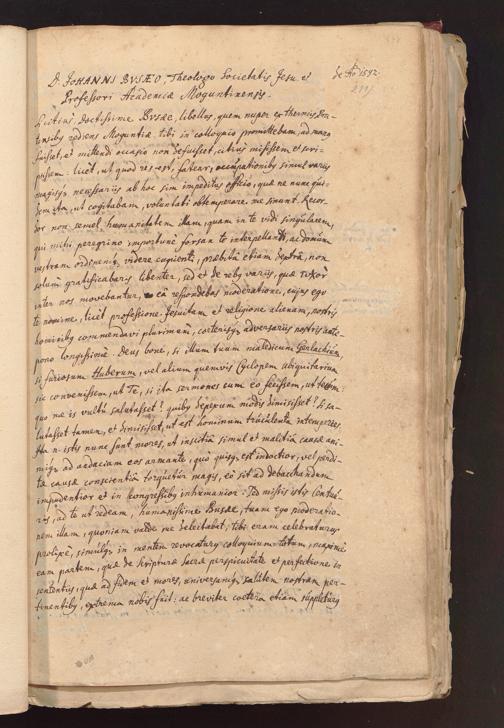 D. JOHANNI BVSÆO, Theologo Societatis Jesu et
de Aō 1592.
Professori Academiæ Moguntinensis.
Libellos, doctissime Busæe, libellos, quem nuper ex thermis
rediens Moguntiæ tibi in colloquio promittebam, ad
fuisset, et mittendi occasio non defuisset, citius misissem et scri-
psissem. licet, ut quod res est, fatear, occupationibus simul variis
magisq; necessariis ab hoc sim impeditus officio, quæ ne nunc qui-
dem ita, ut cogitabam, voluntati obtemperare me sinunt. Recor-
dor non semel humanitatem illam, quam in te vidi singularem,
qui mihi peregrino importune forsan te interpellanti, ac domum
vestram ordinemq; videre cupienti, præbita etiam dextra, non
solum gratificabaris libenter, sed et de rebus variis, quæ
inter nos movebantur, eâ respondebas moderatione, cujus ego
te nomine, licet professione Jesuitam et religione alienum, nostris
hominibus commendavi plurimum, cæterisq; adversariis nostris ante-
pono longissime. Deus bone, si illum tuum maledicum Gerlachium
si furiosum Huberum, vel alium quemvis Cyclopem ubiquitarium
sic convenissem, ut Te, si ita sermones cum eo fecissem, ut tecum:
quo me is vultu salutasset? quibus deperum modis dimisisset? Si sa-
lutasset tamen, et dimisisset, ut est hominum truculenta intemperies.
Ita n. istis nunc sunt mores, et inscitia simul et malitia causæ ani-
mûq; ad audaciam eos armante, quo quisq; est indoctior, vel perdi-
tæ causæ conscientiâ torquetur magis, eò sit ad debacchandum
impudentior et in congressibus inhumanior. Sed missis istis
ad te ut redeam, humanissime Busæe, tuam ego moderatio-
nem illam, quoniam valde me delectabat, tibi eram celebraturus
prolixe, simulq; in mentem revocaturus colloquium totum, maxime
eam partem, quæ de Scripturæ Sacræ perspicuitate et perfectione in
sententiis, quæ ad fidem et mores, universamq; salutem nostram per-
tinentibus, extrema nobis fuit: ac breviter cætera etiam suppleturus